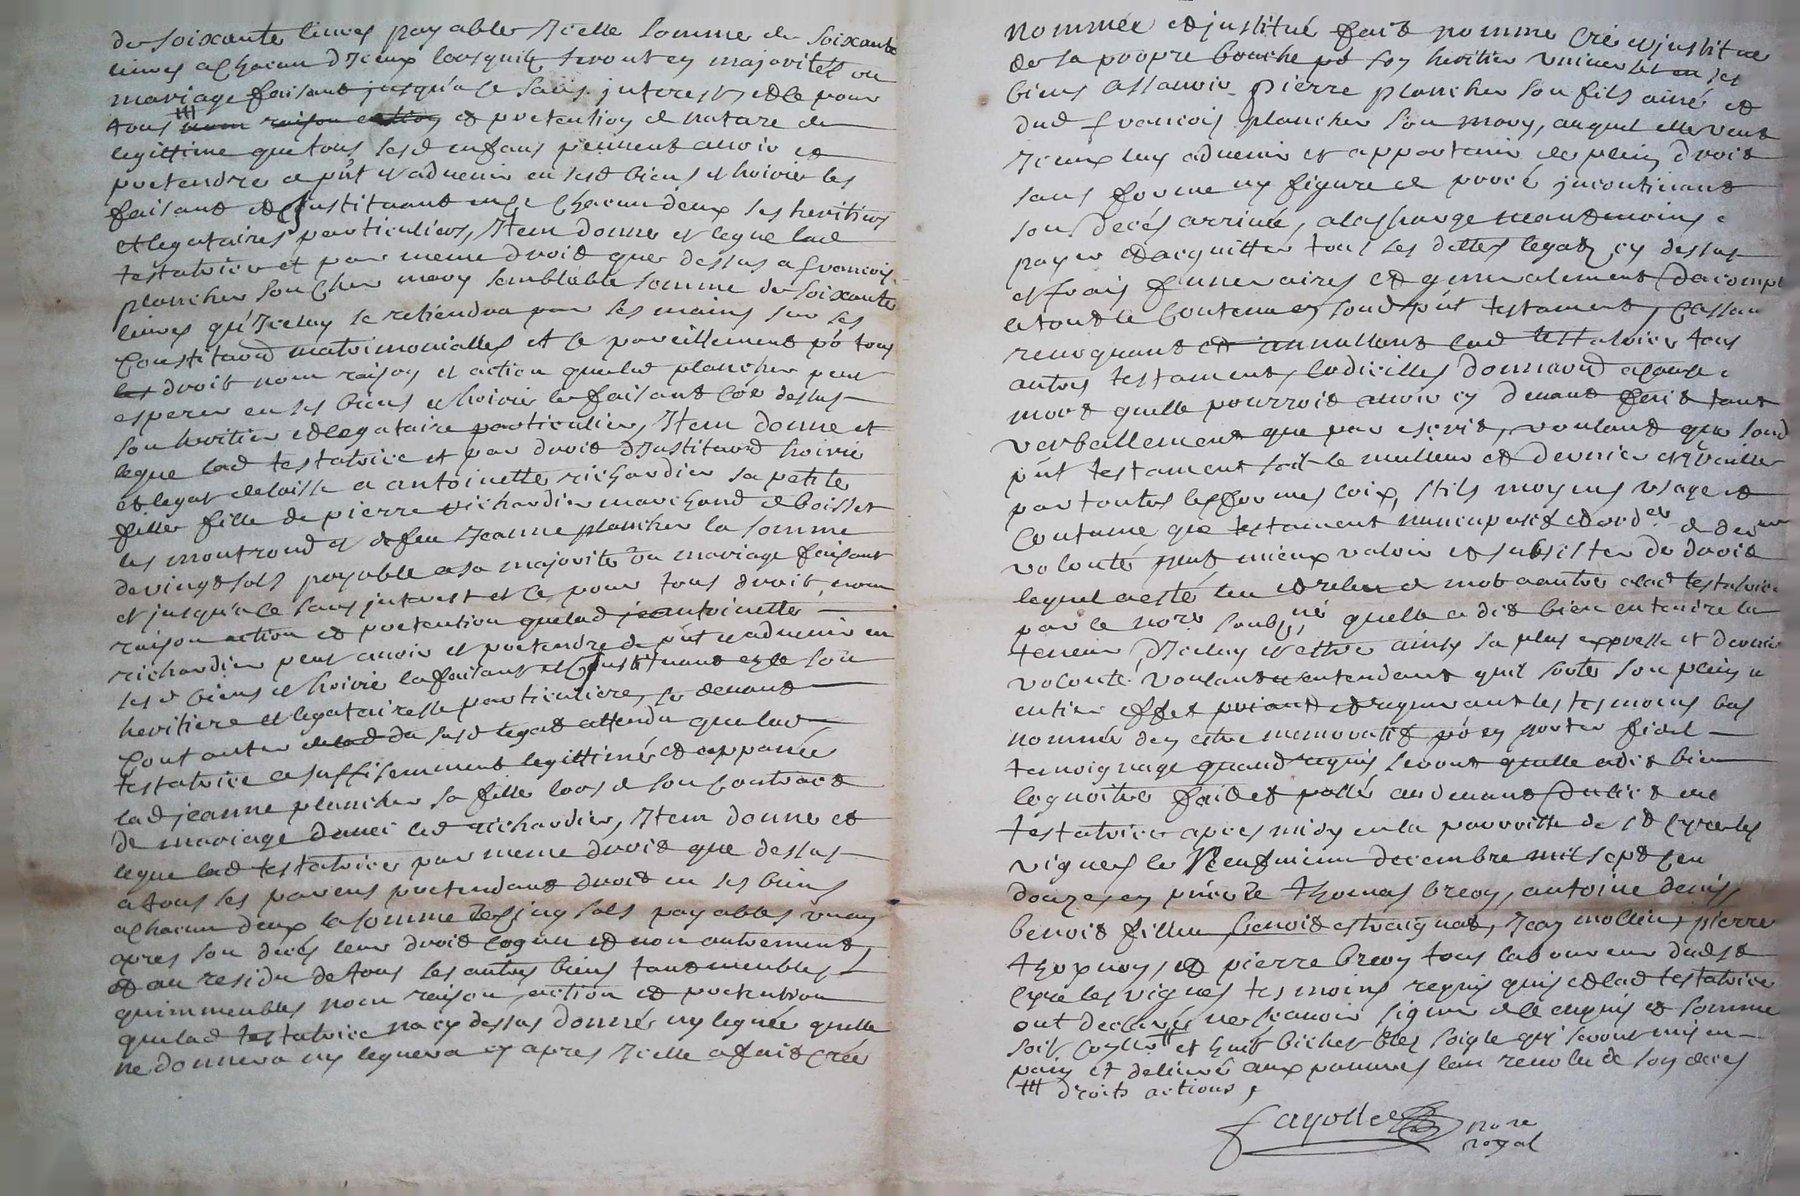 de soixante livres payable Icelle somme de soixante
livres a chacun d'Iceux lorsquilz seront en majorités ou
mariage faisant jusqu'a ce sans interest et ce pour
tous nom raison action et pretention de nature de
legittime que tous sesd enfans peuvent avoir et
pretendre a pnt et advenir en sesd biens et hoirie les
faisant et instituant en ce chacun deux ses heritiers
et legataires particuliers, Item donne et legue lad
testatrice et par meme droit que dessus a francois
plancher son cher mary semblable somme de soixante
livres qu'Iceluy se retiendra par ses mains sur ses
constitaõns matrimonialles et ce pareillement põ tous
les droit nom raison et action que led plancher peut
esperer en ses biens et hoirie le faisant coe dessus
son heritier et legataire particulier, Item donne et
legue lad testatrice et par droit d'Institaõn hoirie
et legat delaisse a antoinette richardier sa petite
fille fille de pierre richardier marchand de boisset
les montrond et de feu Jeanne plancher la somme
de vingt sols payable a sa majorité ou mariage faisant
et jusqu'a ce sans interest et ce pour tous droit nom
raison action et pretention que lad antoinette
richardier peut avoir et pretendre de pnt et advenir en
sesd biens et hoirie la faisant et Instituant en ce son
heritiere et legataire particuliere, se devant
contanter dud legat attendu que lad
testatrice a suffisemment legittimée et appanée
lad jeanne plancher sa fille lors de son contract
de mariage avec led richardier, Item donne et
legue lad testatrice par meme droit que dessus
a tous ses parens pretendant droit en ses biens
a chacun deux la somme de cinq sols payables un an
apres son deces leur droit cognu et non autrement,
et au residu de tous les autres biens tant meubles
qu'immeubles nom raison action et pretention
que lad testatrice na cy dessus donnés ny legués quelle
ne donnera ny leguera cy apres Icelle a fait crée
nommée et institué fait nomme crée et institue
de sa propre bouche põ son heritier universel en ses
biens assavoir pierre plancher son fils ainé et
dud francois plancher son mary, auquel elle veut
Iceux luy advenir et appartenir de plein droit
sans forme ny figure de procé incontinant
son deces arrivée, a la charge neantmoins
payer et acquitter tous ses dettes legatz cy dessus
et frais funeraires et generalement d'acompl
le tout le contenu en sond pnt testament, Cassan
revoquant et annullant lad testatrice tous
autres testament, Codicilles donnaõn a cause
mort quelle pourroit avoir cy devant fait tant
verballement que par escrit, voulant que sond
pnt testament soit le meilleur et dernier et vaille
par toutes les formes loix, stils moyens usage et
coutume que testament nuncupatif et ord.re et der.re
volonté peut mieux valoir et subsister de droit
lequel a esté leu et releu de mot a autre a lad testatrice
par le no.re soubs.né quelle a dit bien entendre la
teneur d'Iceluy et estre ainsy sa plus expresse et derniere
volonté voulant et entendant quil sorte son plein et
entier effet priant et requerant les tesmoins bas
nommés den estre memoratif põ en porter fidel
temoignage quand requis seront quelle a dit bien
cognoitre fait et passé au devant du lict de
testatrice apres midy en la parroisse de st Cyre les
vignes le Neufvieme decembre mil sept cen
douze, en pñce de thomas breery, antoine denis,
benoit filleu, benoit estraignat, Jean mollin, pierre
thoynoy, et pierre breery tous laboureur dud st
Cyre les vignes tesmoins requis qui et lad testatrice
ont declarés ne scavoir signer de ce enquis et somme
soit contr.lé et huit bichet bled soigle qui seront mis en
pain et delivré aux pauvres lan revolu de son deces
### droits actions,
fayolle
no.re
royal